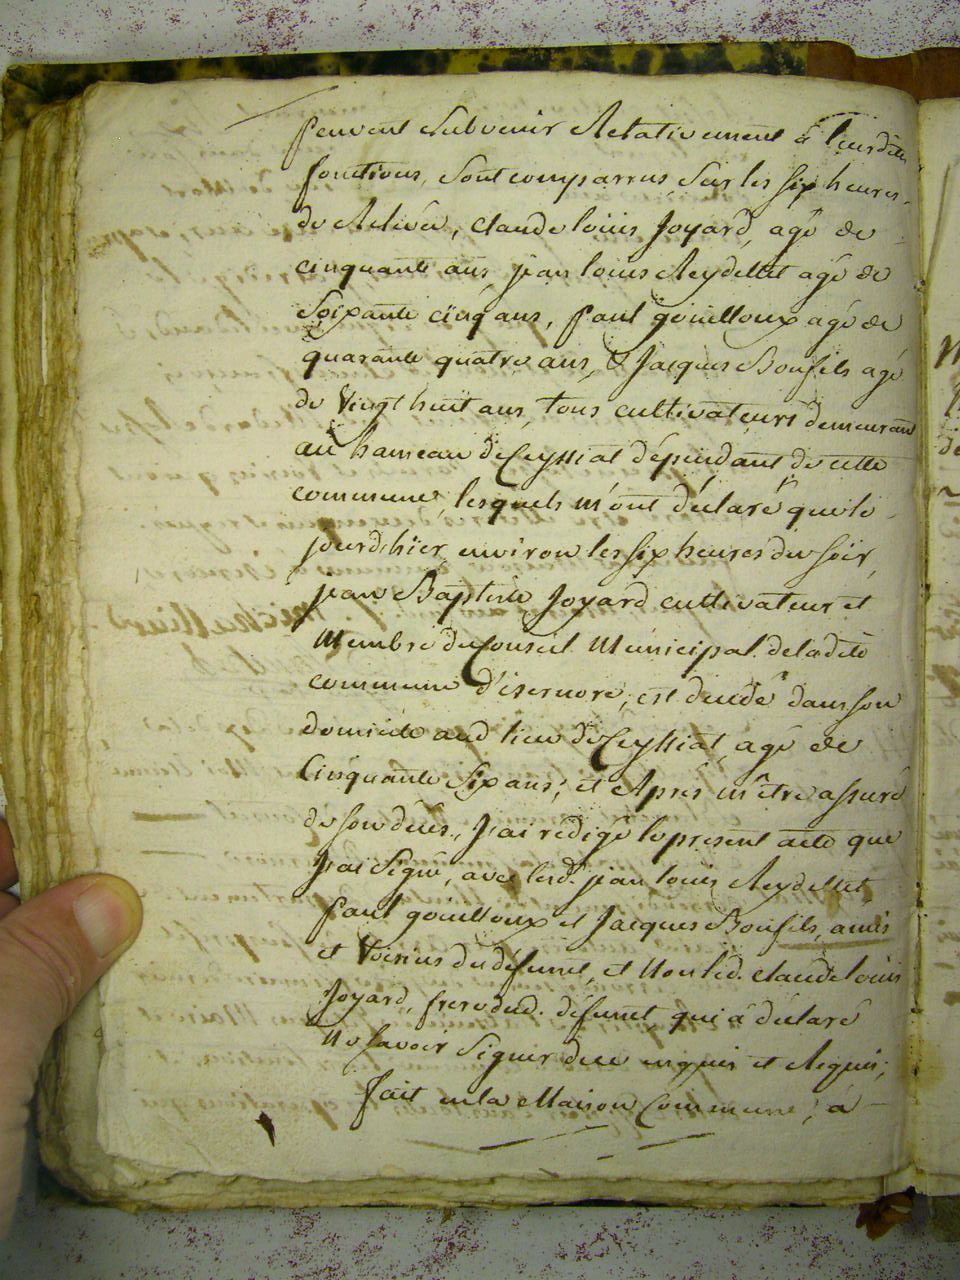 peuvent Subvenir Relativement à leursdites
fonctions, Sont comparrus Sur les six heures
de Relevée, claude louis Joyard, agé de
cinquante ans, jean louis Reydellet agé de
Soixante cinq ans, paul goüilloux agé de
quarante quatre ans, & Jacques Bonfils agé
de Vingt huit ans, tous cultivateurs demeurant
au hameau de Ceyssiat dépendant de cette
commune, lesquels m'ont déclaré que le
jourd'hier environ les six heures du soir,
jean Baptiste Joyard cultivateur et
Membre du Conseil Municipal de ladite
commune d'isernore, est decédé dans son
domicile aud. lieu de Ceyssiat, agé de
Cinquante Six ans; et Après m'être assuré
de son décès, J'ai rédigé le présent acte que
J'ai Signé, avec lesd. jean louis Reydellet,
paul goüilloux et Jacques Bonfils, amis
et Voisins du défunt, et Non led. claude louis
Joyard, frere dud. défunt qui à déclaré
Ne savoir Signer de ce enquis et Requis;
fait en la Maison Commune, à